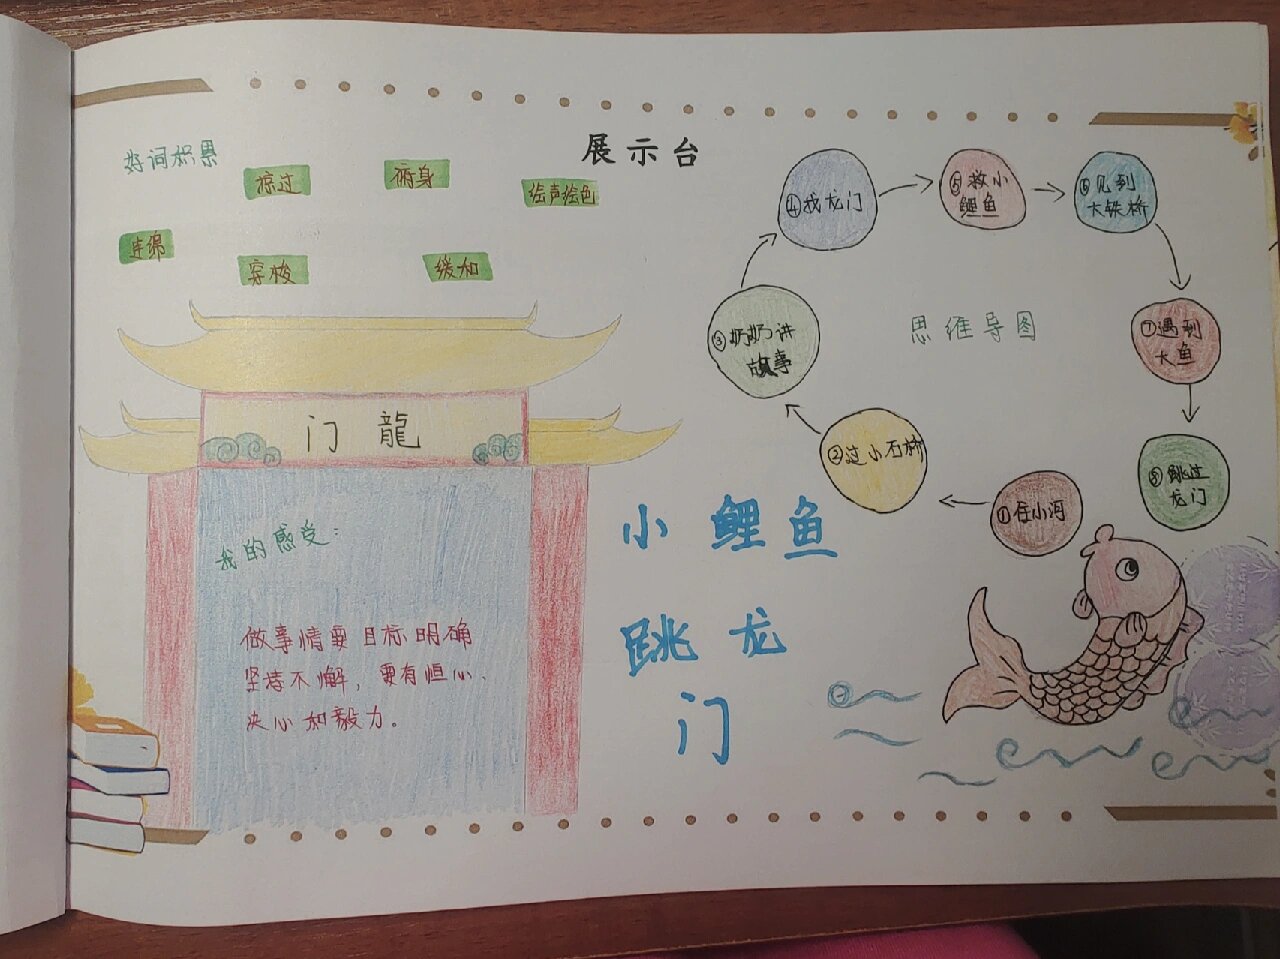 展示台
好词积累
掠过
俯身
绘声绘色
连绵
穿梭
缓如
门龍
我的感受：
做事情要目标明确
坚持不懈，要有恒心、
决心和毅力。
小鲤鱼
跳龙
门
思维导图
①在小河
②过小石桥
③奶奶讲
故事
④找龙门
⑤救小
鲤鱼
⑥见到
大铁桥
⑦遇到
大鱼
⑧跳过
龙门